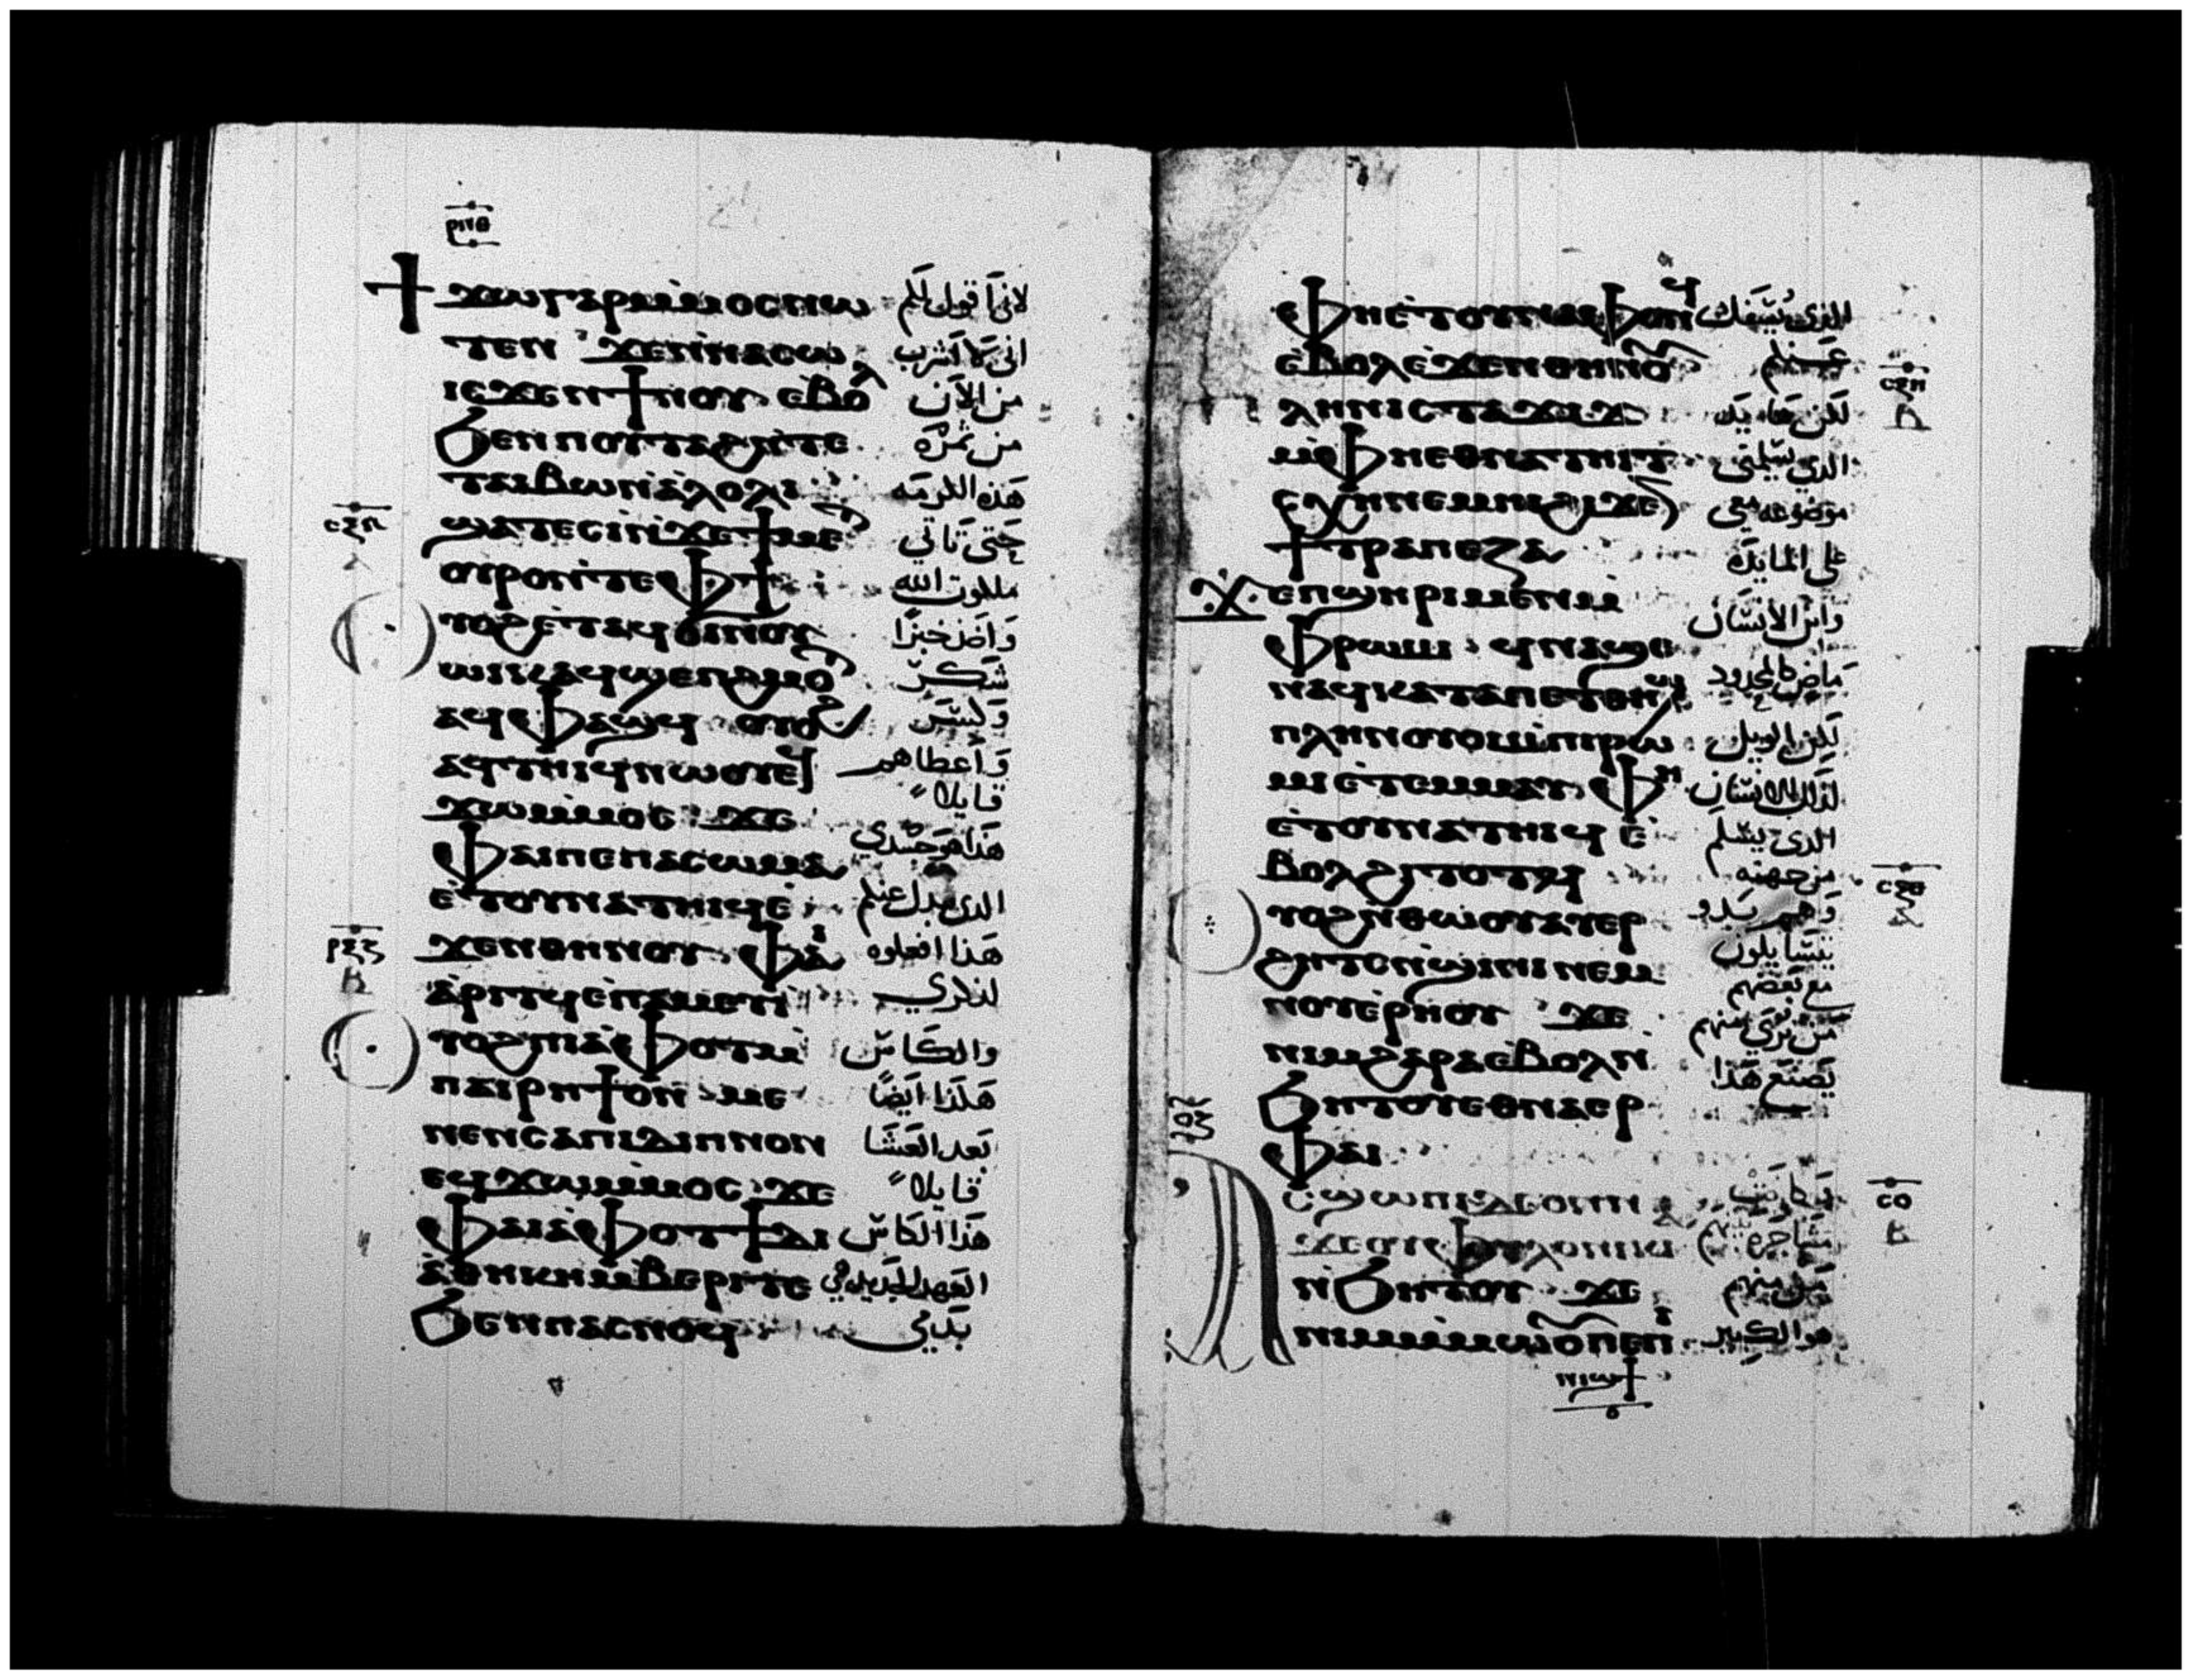 ⲣⲛⲑ
ϯϫⲱⲅⲁⲣⲙⲙⲟⲥⲛⲱ لانى اقول لكم
ⲧⲉⲛ ϫⲉⲛⲛⲁⲥⲱ انى لا اشرب
ⲓⲥϫⲉⲛϯⲛⲟⲩ ⲉⲃⲟⲗ من الان
ϧⲉⲛⲡⲟⲩⲧⲁϩⲛⲧⲉ من ثمرة
ⲧⲁⲓⲃⲱⲛⲁⲗⲟⲗⲓ هذه الكرمه
ϣⲁⲧⲉⲥⲓⲛϫⲉϯⲙⲉⲧ حتى تاتي
ⲟⲩⲣⲟⲛⲧⲉⲫϯ ملكوت الله
ⲟⲩⲟϩⲉⲧⲁϥϭⲓⲛⲟⲩ واخذ خبزا
ⲱⲓⲕⲁϥϣⲉⲡϩⲙⲟⲧ شكر
ⲁϥⲫⲁϣϥ ⲟⲩⲟϩ وكسر
ⲁϥⲧⲏⲓϥⲛⲱⲟⲩⲉϥ واعطاهم
ϫⲱⲙⲙⲟⲥ ϫⲉ قايلا
ⲫⲁⲓⲡⲉⲡⲁⲥⲱⲙⲁ هذا هو جسدي
ⲉⲧⲟⲩⲛⲁⲧⲏⲓϥⲉ الذى يبدل عنكم
ϫⲉⲛⲑⲏⲛⲟⲩ ⲫⲁⲓ هذا افعلوه
ⲁⲣⲓⲧϥⲉⲡⲁⲙⲉⲩⲓ لذكري
ⲟⲩⲟϩⲡⲓⲁⲫⲟⲧ والكاس
ⲡⲁⲓⲣⲏϯⲟⲛ ⲙⲉ هكذا ايضا
ⲛⲉⲛⲥⲁⲡⲓⲇⲓⲡⲛⲟⲛ بعد العشا
ⲉϥϫⲱⲙⲙⲟⲥ ϫⲉ قايلا
ⲫⲁⲓⲁⲫⲟⲧϯⲇⲓ هذا الكاس
ⲁⲑⲏⲕⲏⲙⲃⲉⲣⲓⲧⲉ العهد الجديد في
ϧⲉⲛⲡⲁⲥⲛⲟϥ بدمي
ⲫⲏⲉⲧⲟⲩⲛⲁⲫⲟⲛϥ الذى يسفك
ⲉⲃⲟⲗⲉϫⲉⲛⲑⲏⲛⲟⲩ عنكم
ⲡⲗⲏⲛⲓⲥⲧⲁϫⲓϫ لكن هايد
ⲙⲫⲏⲉⲑⲛⲁⲧⲏⲓⲧ الذى يسلمنى
ⲥⲭⲏⲛⲉⲙⲏⲓϩⲓϫⲉⲛ موضوعه معى
ϯⲧⲣⲁⲡⲉⲍⲁ على المايدة
ϫⲉⲡϣⲏⲣⲓⲙⲉⲛⲙ وابن الانسان
ⲫⲣⲱⲙⲓ ϥⲛⲁϣⲉ ماض كالمحدود
ⲛⲁϥⲕⲁⲧⲁⲡⲉⲧⲑⲏϣ
ⲡⲗⲏⲛⲟⲩⲟⲓⲙⲡⲓⲣⲱ لكن الويل
ⲙⲓⲉⲧⲉⲙⲙⲁⲩ ⲫⲏ لذلك الانسان
ⲉⲧⲟⲩⲛⲁⲧⲏⲓϥⲉ الذى يسلم
ⲃⲟⲗϩⲓⲧⲟⲧϥ من جهته
ⲟⲩⲟϩⲛⲑⲱⲟⲩⲁⲩⲉⲣ وهم بدو
ϩⲏⲧⲥⲛϣⲓⲛⲓⲛⲉⲙ يتسايلون
ⲛⲟⲩⲉⲣⲏⲟⲩ ϫⲉ مع بعضهم
ⲛⲓⲙϩⲁⲣⲁⲉⲃⲟⲗⲛ من ترى منهم
ϧⲏⲧⲟⲩⲉⲑⲛⲁⲉⲣ يصنع هذا
ⲫⲁⲓ
ⲁⲥϣⲱⲡⲓⲇⲉⲟⲛⲛ وكانت
ϫⲉⲟⲩⲫⲩⲗⲟⲛⲓⲕⲓⲁ مشاجرة
ⲛϧⲏⲧⲟⲩ ϫⲉ من منهم
ⲛⲓⲙⲙⲙⲱⲟⲩⲡⲉⲡⲓ هو الكبير
ⲛⲓϣϯ
ⲥⲝⲏ
ⲃ
ⲥⲝⲑ
ⲥⲟ